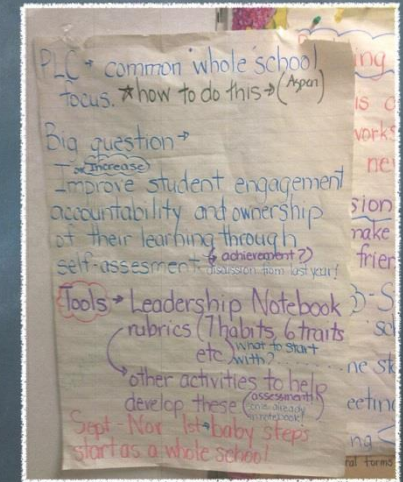 PLC → common whole school
focus. ☆ how to do this → (Aspen)
Big question →
To Increase
Improve student engagement
accountability and ownership
of their learning through
self-assesment (& achievement?)
discussion from last year!
Tools → Leadership Notebook
rubrics (7 habits, 6 traits
etc) what to start
with?
→ other activities to help
develop these (assessment
one already
in notebook!)
Sept - Nov 1st → baby steps
start as a whole school
ing
is
works
ne
sion
make
frien
ne st
eeting
ng
ral forms